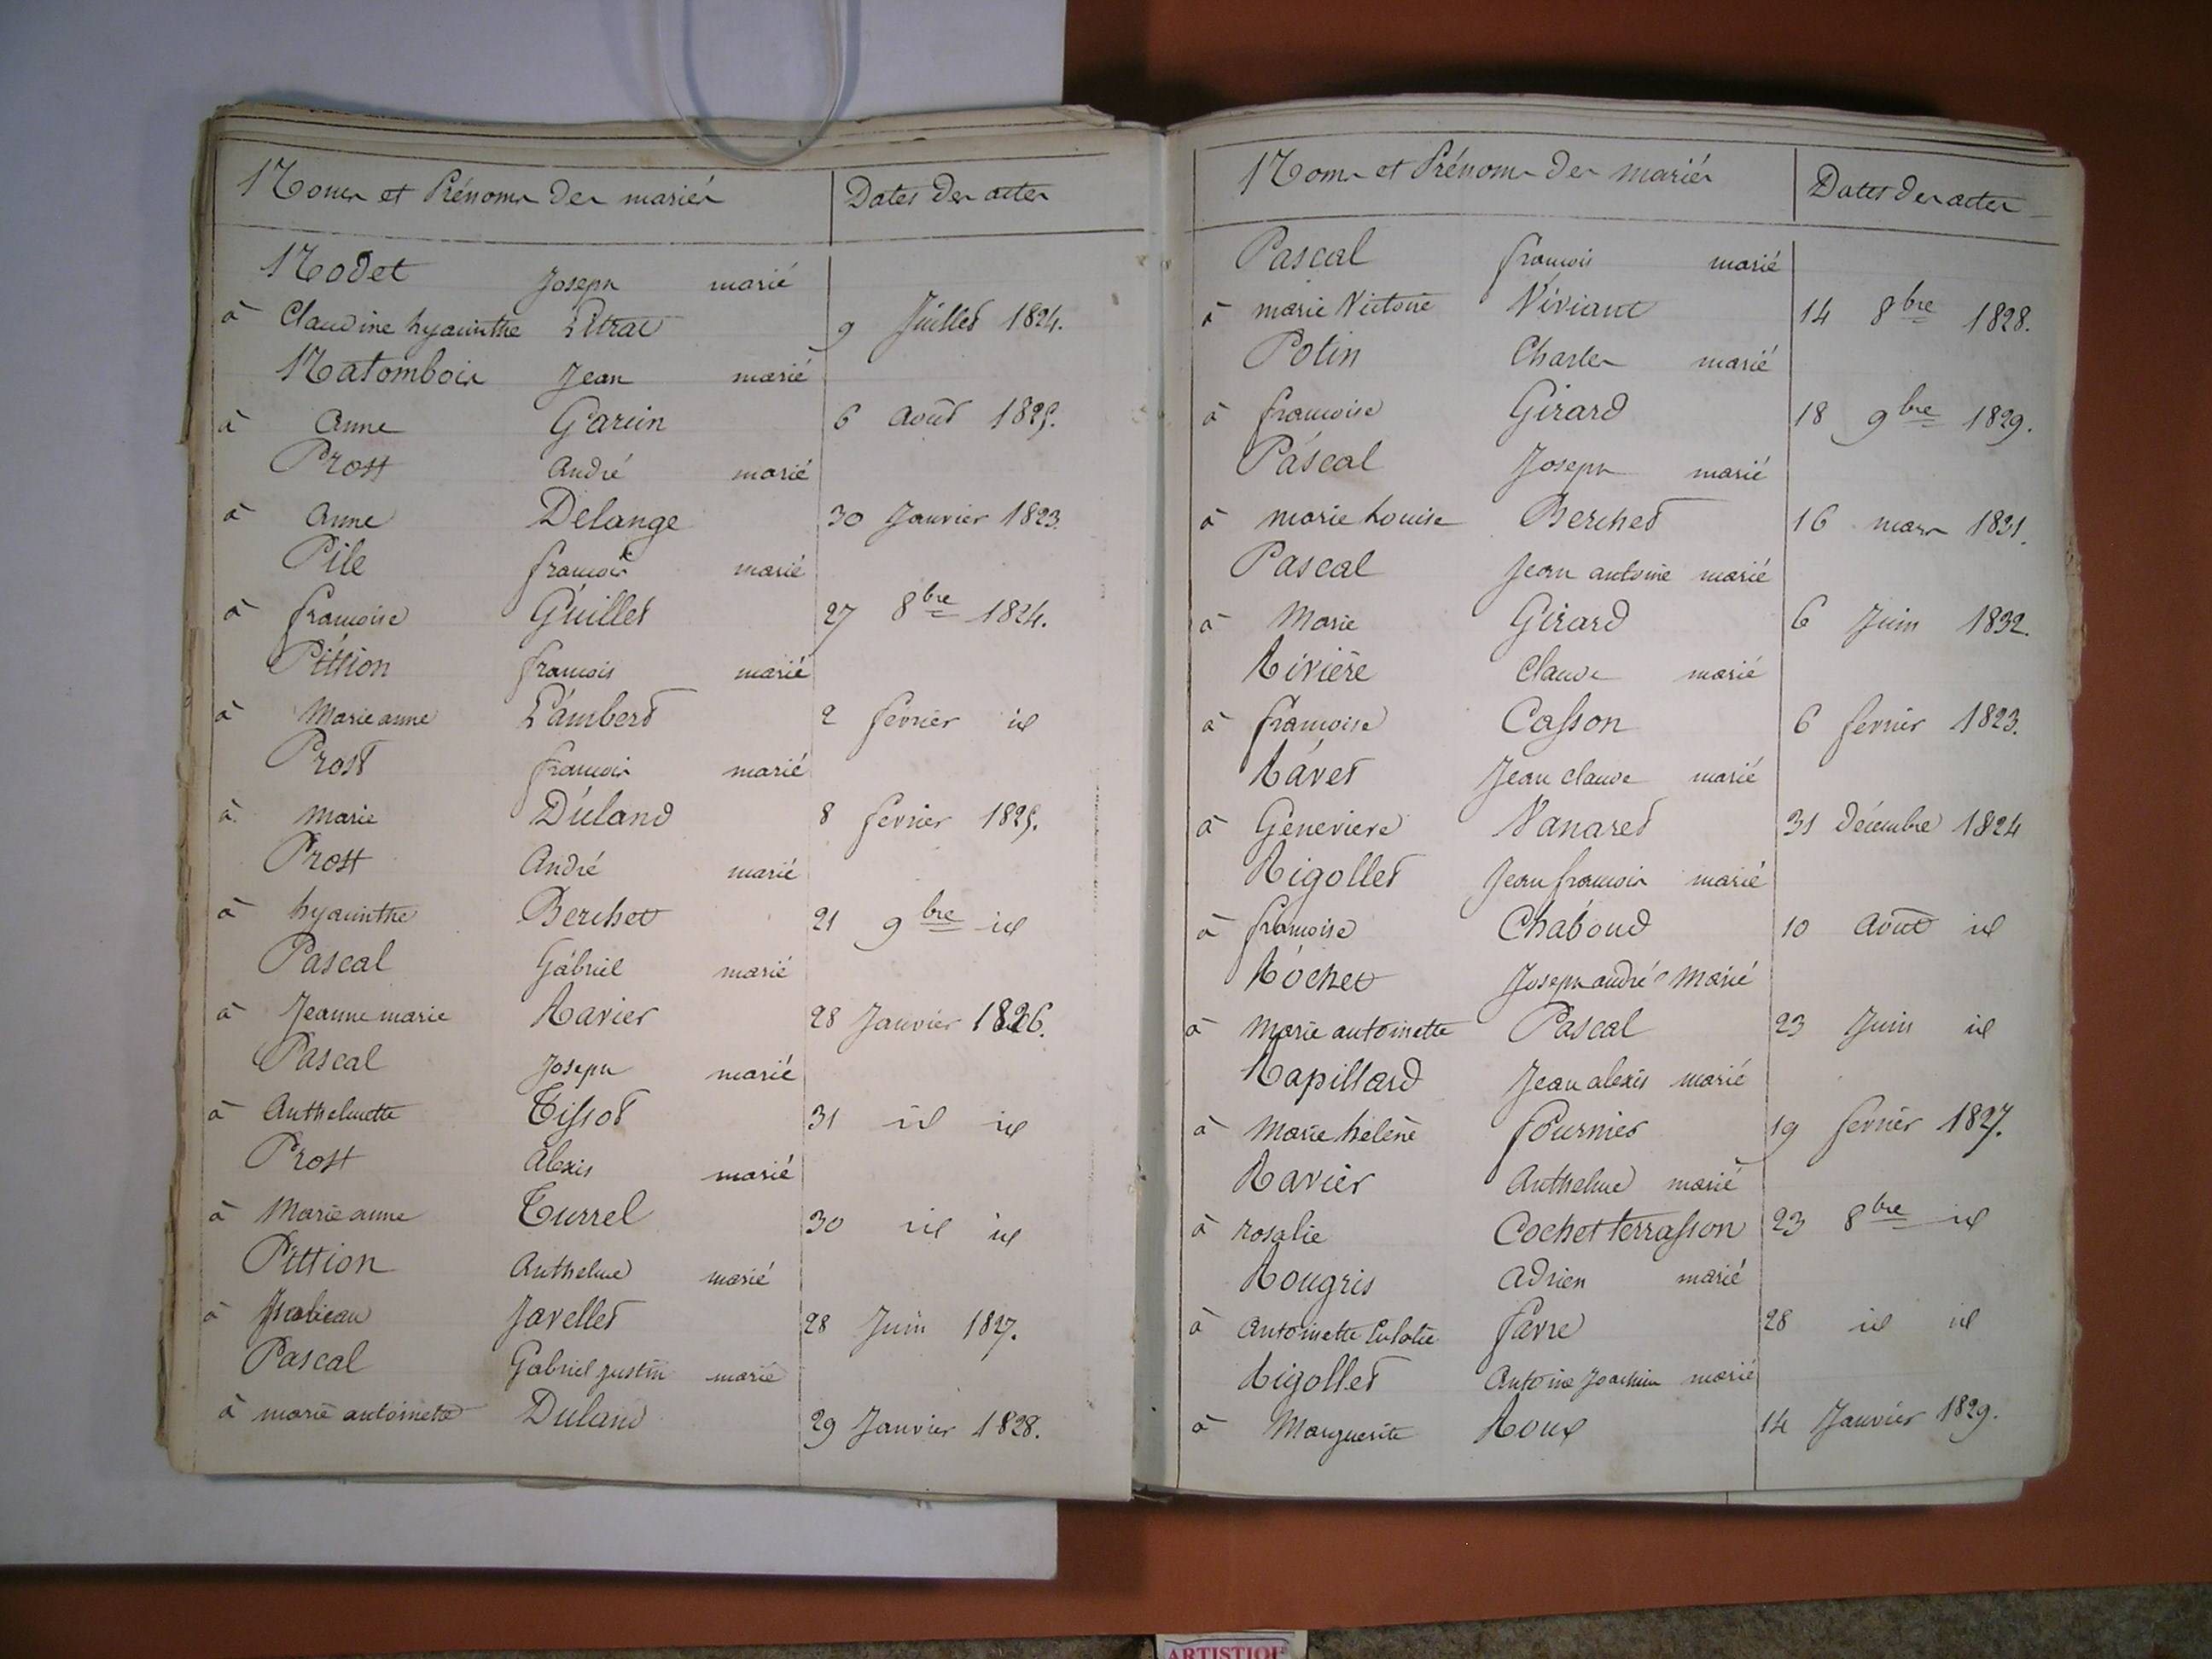 Noms et Prénoms des mariés Dates des actes
Nodet Joseph marié
à Claudine hyacinthe Litrat 9 Juillet 1824.
Natombois Jean marié
à Anne Garin 6 Août 1825.
Prost André marié
à Anne Delange 30 Janvier 1823.
Pile françois marié
à françoise Guillet 27 8bre 1824.
Pittion françois marié
à Marie anne Lambert 2 février id
Prost françois marié
à Marie Duland 8 février 1825.
Prost André marié
à hyacinthe Berchet 21 9bre id
Pascal Gabriel marié
à Jeanne marie Ravier 28 Janvier 1826.
Pascal Joseph marié
à Anthelmette Tissot 31 id id
Prost Alexis marié
à Marie anne Turrel 30 id id
Pittion Anthelme marié
à Isabeau Javellet 28 Juin 1827.
Pascal Gabriel justin marié
à marie antoinette Duland 29 Janvier 1828.
Noms et Prénoms des mariés Dates des actes
Pascal françois marié
à marie Victoire Viviant 14 8bre 1828.
Potin Charles marié
à françoise Girard 18 9bre 1829.
Pascal Joseph marié
à marie Louise Berchet 16 mars 1831.
Pascal Jean antoine marié
à Marie Girard 6 Juin 1832.
Rivière Claude marié
à françoise Casson 6 février 1823.
Ravet Jean claude marié
à Genevieve Vanaret 31 décembre 1824
Rigollet Jean françois marié
à françoise Chaboud 10 Août id
Rochet Joseph andré Marié
à Marie antoinette Pascal 23 Juin id
Rapillard Jean alexis marié
à Marie helène fournier 19 février 1827.
Ravier Anthelme marié
à rosalie Cochet terrasson 23 8bre id
Rougris Adrien marié
à Antoinette Eulalie favre 28 id id
Rigollet Antoine Joachim marié
à Marguerite Roux 14 Janvier 1829.
ARTISTIQUE